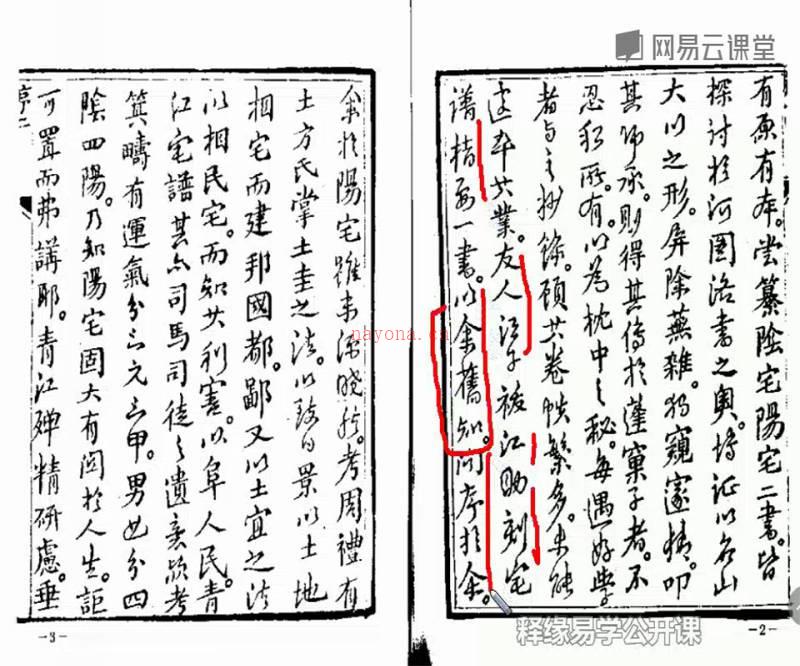 网易云课堂
有原有本。尝纂陰宅陽宅二書。皆
探討於河圖洛書之奥。博证以名山
大川之形。屏除蕪雜。獨窺邃精。叩
其師承。則得其傳於蓬窠子者。不
忍私所有。以為枕中之秘。每遇好學。
者与之抄錄。顧其卷帙繁多。未能
卒其業。友人江助刻宅
譜指要一書。以余舊知。問序於余。
余於陽宅雖未深曉。然考周禮有
土方氏掌土圭之法。以致日景以土地
相宅而建邦國都鄙又以土宜之法
以相民宅。而知其利害。以阜人民。青
江宅譜其亦司馬司徒之遺意歟考
箕疇有運氣分三元三甲。男女分四
陰四陽。乃知陽宅固大有関於人生。詎
可置而弗講耶。青江殫精研慮。垂
序二
-3-
-2-
nayona.ca
释缘易学公开课